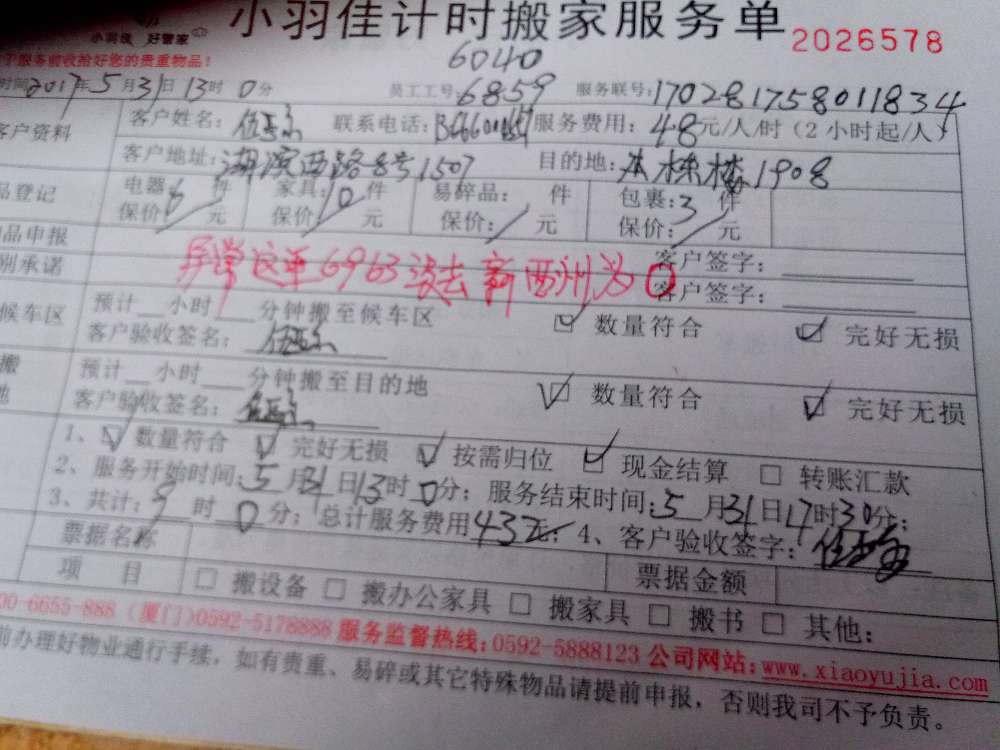 小羽佳计时搬家服务单
小羽佳 好管家 2026578
服务验收拾好您的贵重物品!
6040
时间2017年5月31日13时0分 员工工号:6859 服务联号:17028175801 1834
客户资料 客户姓名: 联系电话: 服务费用:48元/人/时(2小时起/人)
客户地址:湖滨西路8号1507 目的地:本栋楼1908
品登记 电器6件 家具10件 易碎品: 件 包裹:3件
保价:/元 保价:/元 保价:/元 保价:/元
物品申报 客户签字:
别承诺 异常这单6963没去新西州为0 客户签字:
候车区 预计__小时__分钟搬至候车区 ☑ 数量符合 ☑ 完好无损
客户验收签名:
搬 预计__小时__分钟搬至目的地 ☑ 数量符合 ☑ 完好无损
地 客户验收签名:
1、☑数量符合 ☑ 完好无损 ☑ 按需归位 ☑ 现金结算 □ 转账汇款
2、服务开始时间:5月31日13时0分;服务结束时间:5月31日17时30分;
3、共计:9时0分;总计服务费用432元;4、客户验收签字:
票据名称 票据金额
项 目 □ 搬设备 □ 搬办公家具 □ 搬家具 □ 搬书 □ 其他:
00-6655-888(厦门)0592-5178888 服务监督热线:0592-5888123 公司网站:www.xiaoyujia.com
前办理好物业通行手续,如有贵重、易碎或其它特殊物品请提前申报,否则我司不予负责。